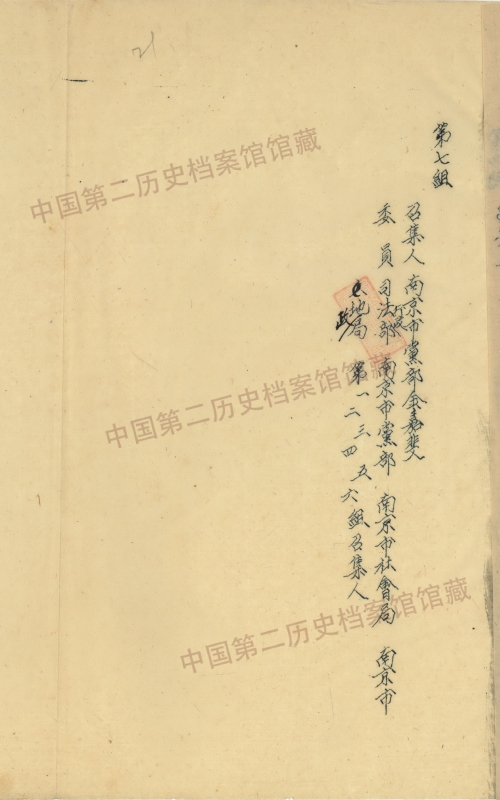 21
第七組
召集人 南京市黨部金嘉斐
委員 司法行政部 南京市黨部 南京市社會局 南京市
地政局 第一二三四五六組召集人
中国第二历史档案馆馆藏
中国第二历史档案馆馆藏
中国第二历史档案馆馆藏